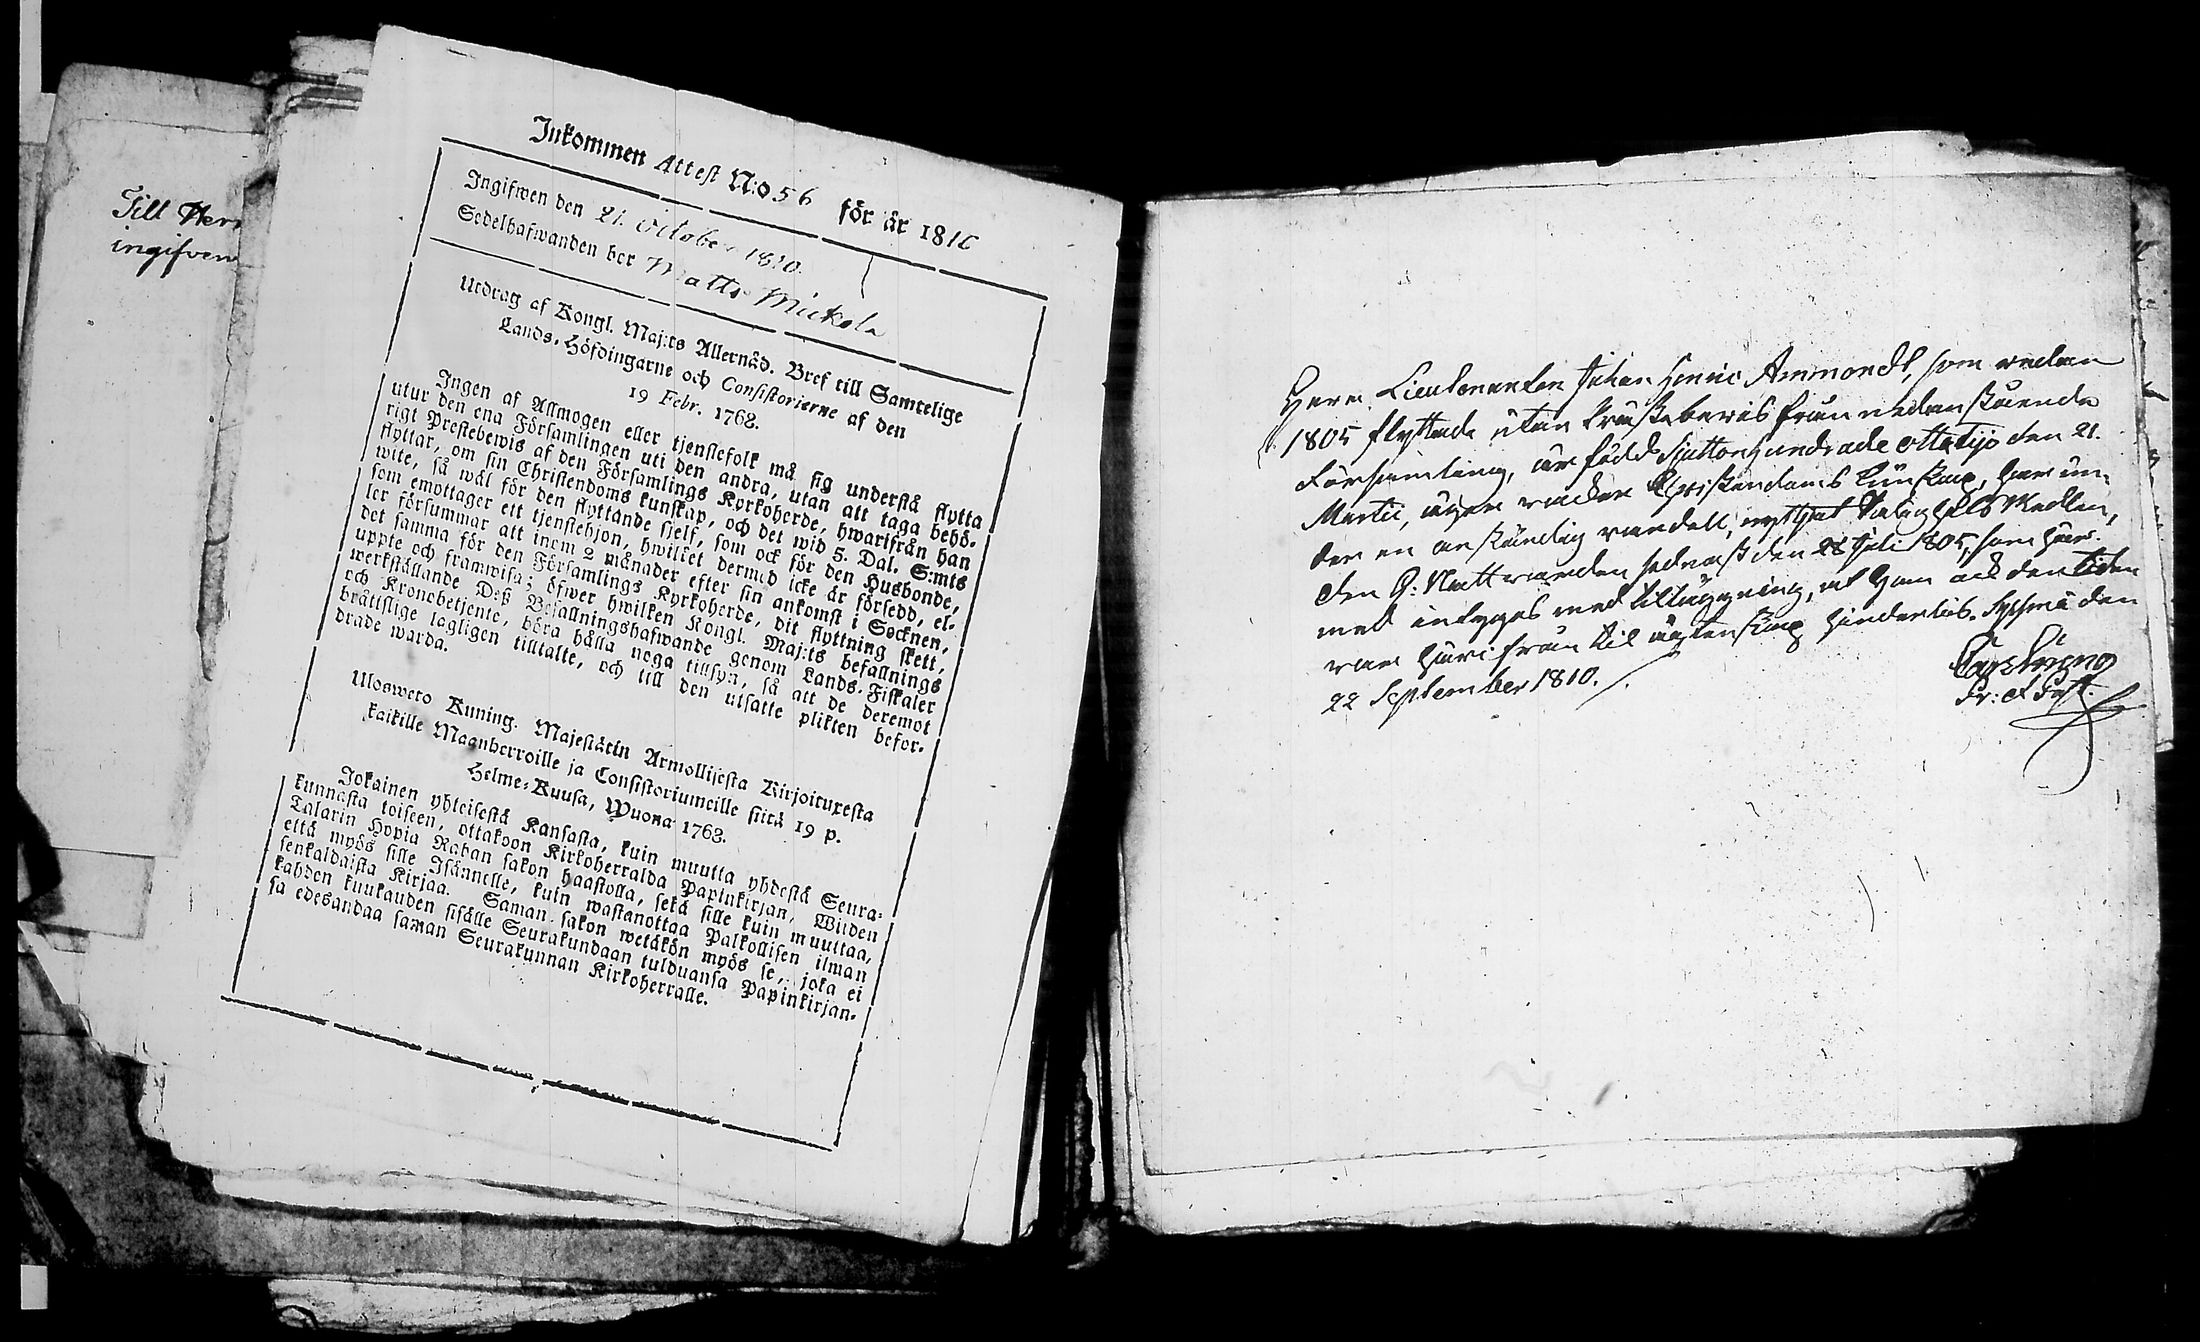 Till Herr
ingifven
Inkommen Attest N:o 56 för år 1810
Ingifwen den 21. October 1810.
Sedelhafwanden ber Matts Mickola
Utdrag af Kongl. Maj:ts Allernåd. Bref till Samtelige
Lands-Höfdingarne och Consistorierne af den
19 Febr. 1768.
Ingen af Allmogen eller tjenstefolk må sig understå flytta
utur den ena Församlingen uti den andra, utan att taga behö-
rigt Prestebewis af den Församlings Kyrkoherde, hwarifrån han
flyttar, om sin Christendoms kunskap, och det wid 5. Dal. S:mts
wite, så wäl för den flyttande sjelf, som ock för den Husbonde,
som emottager ett tjenstehjon, hwilket dermed icke är försedd, el-
ler försummar att inom 2 månader efter sin ankomst i Socknen,
det samma för den Församlings Kyrkoherde, dit flyttning skett,
uppte och framwisa; öfwer hwilken Kongl. Maj:ts befallnings
werkställande Deß Befallningshafwande genom Lands-Fiskaler
och Kronobetjente, böra hålla noga tillsyn, så att de deremot
bråttslige lagligen tilltalte, och till den utsatte plikten befor-
drade warda.
Ulosweto Kuning. Majestätin Armollisesta Kirjoituxesta
kaikille Maanherroille ja Consistoriumeille siitä 19 p.
Helme-Kuusa, Wuona 1768.
Jokainen yhteisestä Kansasta, kuin muutta yhdestä Seura-
kunnasta toiseen, ottakoon Kirkoherralda Papinkirjan, Wiiden
Talarin Hopia Rahan sakon haastolla, sekä sille kuin muuttaa,
että myös sille Isännelle, kuin wastanottaa Palkollisen ilman
senkaldaista Kirjaa. Saman sakon wetäkön myös se, joka ei
kahden kuukauden sisälle Seurakundaan tulduansa Papinkirjan-
sa edesandaa saman Seurakunnan Kirkoherralle.
Herr Lieutenanten Johan Henric Ammondt, som redan
1805 flyttade utan Prästebevis från nedanstående
Församling, är född Sjuttonhundrade ottatijo den 21.
Martii, äger vacker Christendoms kunskap, har un-
der en anständig vandell, nyttjat Salighets Medlen,
den H: Nattvarden sednast den 28 Juli 1805, som här-
med intygas med tilläggning, at han ock den tiden
var härifrån til äktenskap hinderlös. Sysmä den
22 September 1810.